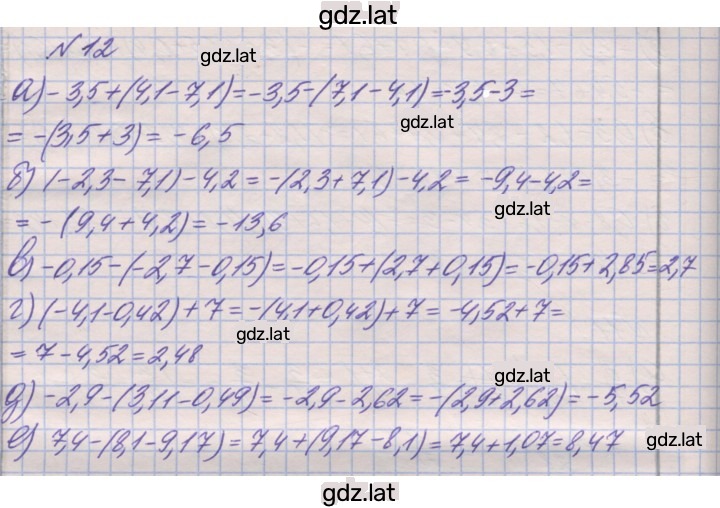 gdz.lat
№ 12
gdz.lat
а) -3,5+(4,1-7,1)=-3,5-(7,1-4,1)=-3,5-3=
gdz.lat
= -(3,5+3)= -6,5
б) (-2,3-7,1)-4,2=-(2,3+7,1)-4,2= -9,4-4,2=
gdz.lat
= -(9,4+4,2)= -13,6
в) -0,15-(-2,7-0,15)=-0,15+(2,7+0,15)= -0,15+2,85=2,7
г) (-4,1-0,42)+7=-(4,1+0,42)+7= -4,52+7=
gdz.lat
= 7-4,52=2,48
gdz.lat
д) -2,9-(3,11-0,49)= -2,9-2,62=-(2,9+2,62)=-5,52
е) 7,4-(8,1-9,17)=7,4+(9,17-8,1)=7,4+1,07=8,47
gdz.lat
gdz.lat